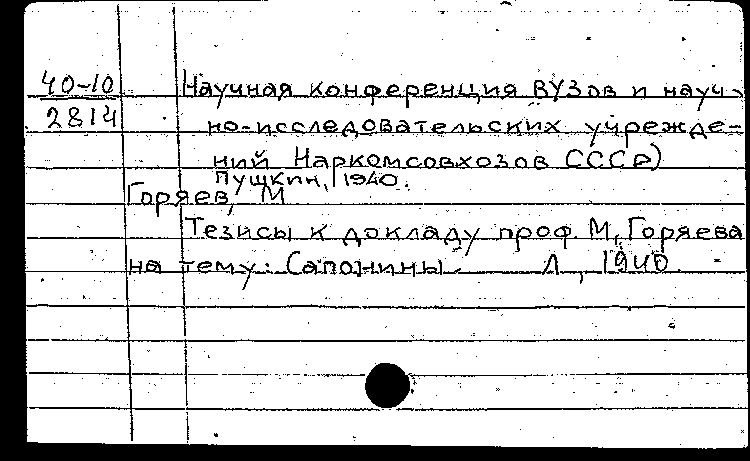 40-10
2814
Научная конференция ВУЗов и науч-
но-исследовательских учрежде-
ний Наркомсовхозов СССР)
Пушкин, 1940.
Горяев, М
Тезисы к докладу проф. М. Горяева
на тему: Сапонины. Л, 1940.